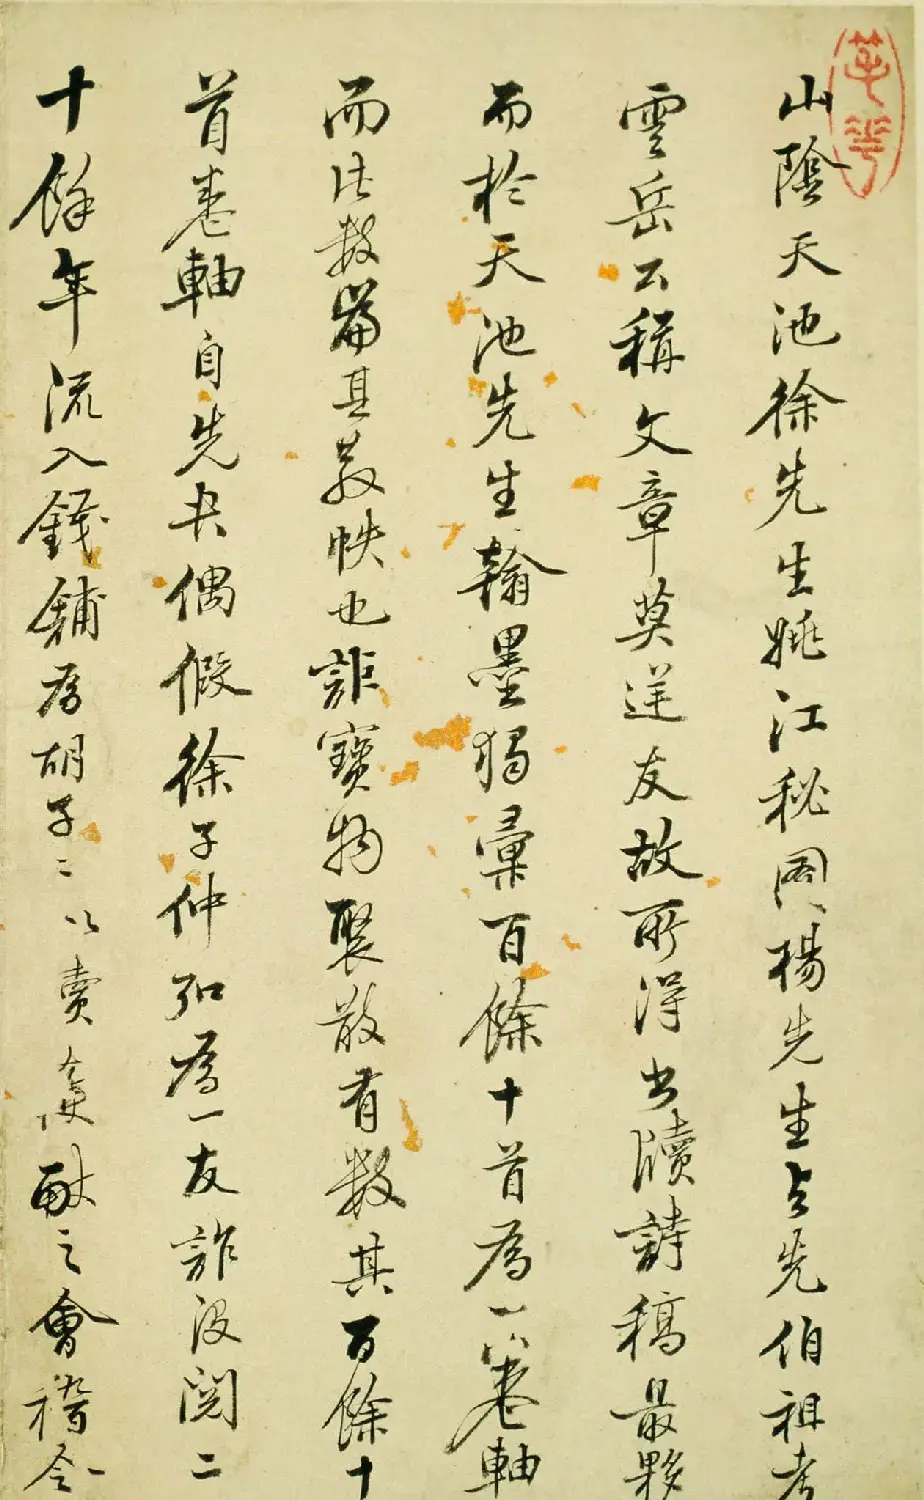 山陰天池徐先生姚江秘圖楊先生與先伯祖考
雲岳公稱文章莫逆友故所得書牘詩稿最夥
而於天池先生翰墨獨彙百餘十首為一大卷軸
而法數篇其散帙也詎寶物聚散有數其百餘十
首卷軸自先夫偶假徐子仲弘為一友詐沒閱二
十餘年流入錢鋪為胡子二以賣獻之會稽令